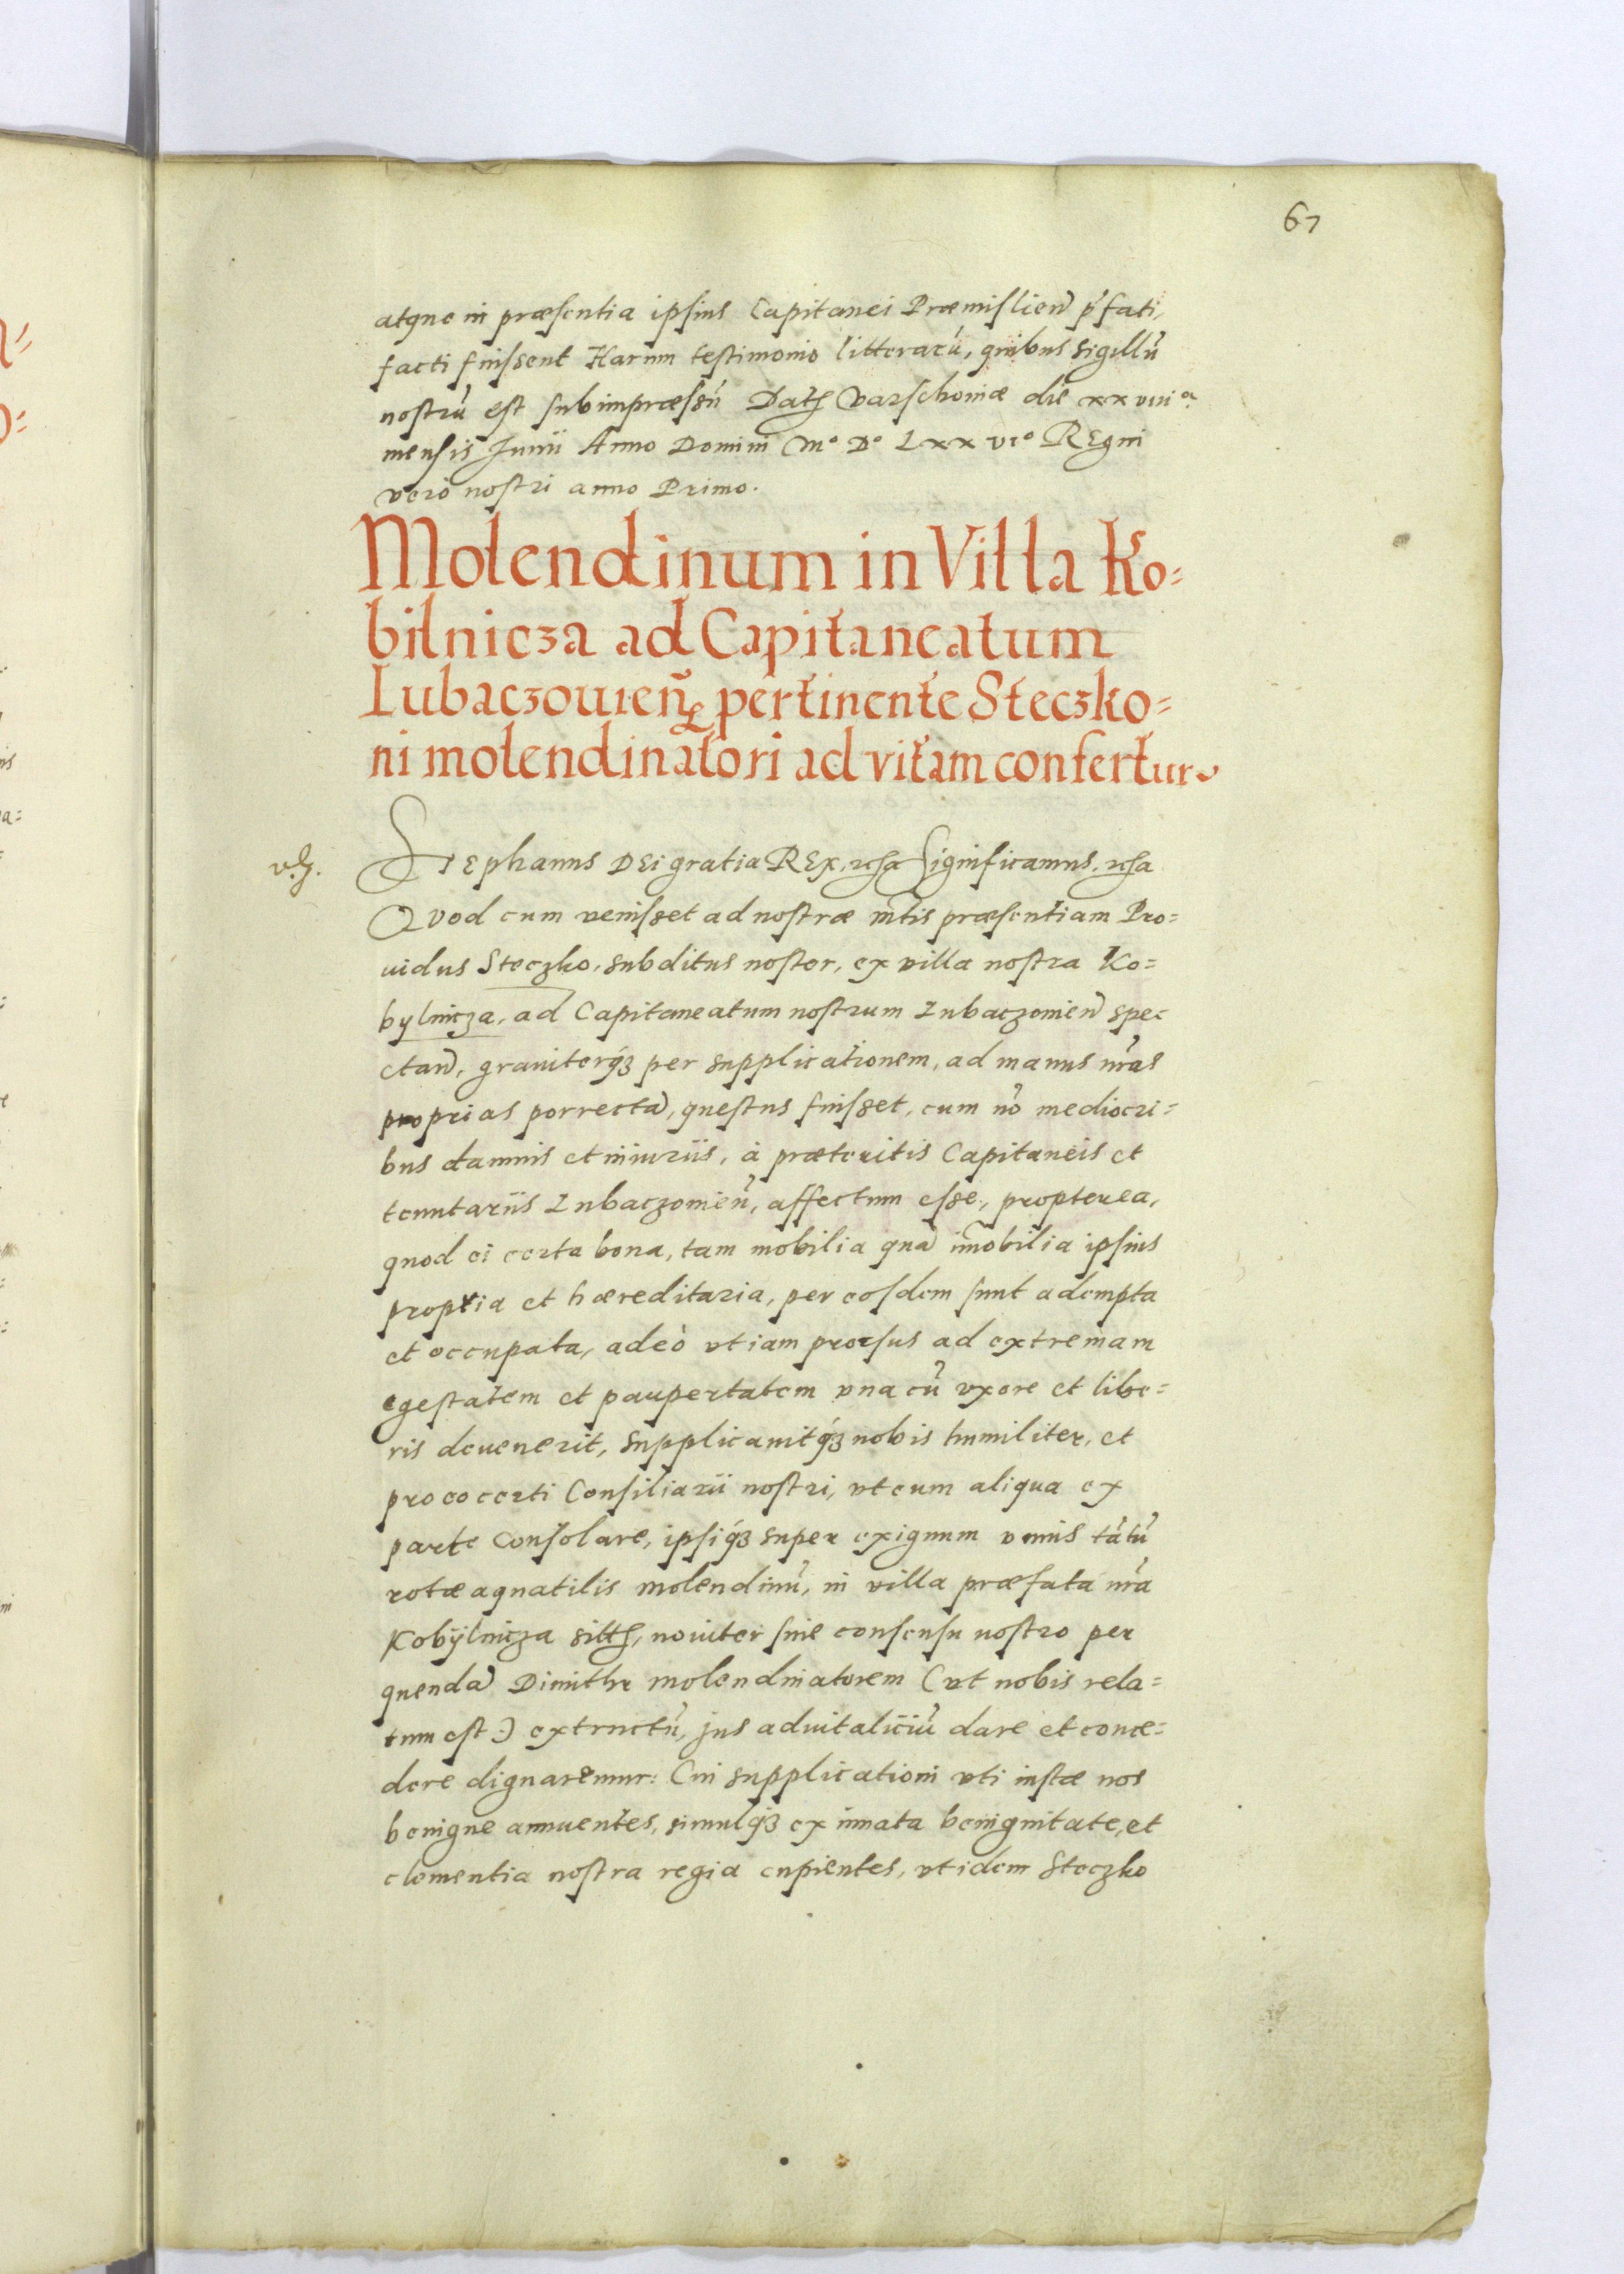 67
atque in præsentia ipsius Capitanei Præmislien̄ p̄fati,
facti fuissent Harum testimonio litterarū, quibus sigillū
nostrū est subimpræssū Datȝ Varschoviæ die xxviiiᵃ
mensis Junii Anno Domini Mº Dº Lxxviº REgni
vero nostri anno Primo.
Molendinum in Villa Ko=
bilnicza ad Capitaneatum
Lubaczouien̄ pertinente Steczko=
ni molendinatori ad vitam confertur
Stephanus DEi gratia REx, Significamus,
Quod cum venisset ad nostræ mtis præsentiam Pro=
uidus Steczko, subditus noster, ex villa nostra Ko=
bylnicza, ad Capitaneatum nostrum Lubaczouien̄ spec
ctan̄, grauiterq́ȝ per supplicationem, ad manus nr̄as
proprias porrectā, questus fuisset, cum nō mediocri=
bus damnis et iniuriis, à præteritis Capitaneis et
tenutariis Lubaczouien̄, affectum esse, propterea,
quod ei certa bona, tam mobilia quā im̄obilia ipsius
propria et hæreditaria, per eosdem sunt adempta
et occupata, adeò vt iam prorsus ad extremam
egestatem et paupertatem vna cū vxore et libe=
ris deuenerit, supplicauitq́ȝ nobis humiliter, et
pro eo certi Consiliarii nostri, vt eum aliqua ex
parte consolare, ipsiq́ȝ super exiguum vnius tātū
rotæ aquatilis molendinū, in villa præfata nr̄a
Kobÿlnicza sittȝ, nouiter sine consensu nostro per
quendā Dimithr molendinatorem (vt nobis rela=
tum est:) extructū, jus aduitaliciū dare et conce=
dere dignaremur: Cui supplicationi vti iustæ nos
benigne annuentes, simulq́ȝ ex innata benignitate, et
clementia nostra regia cupientes, vt idem Steczko